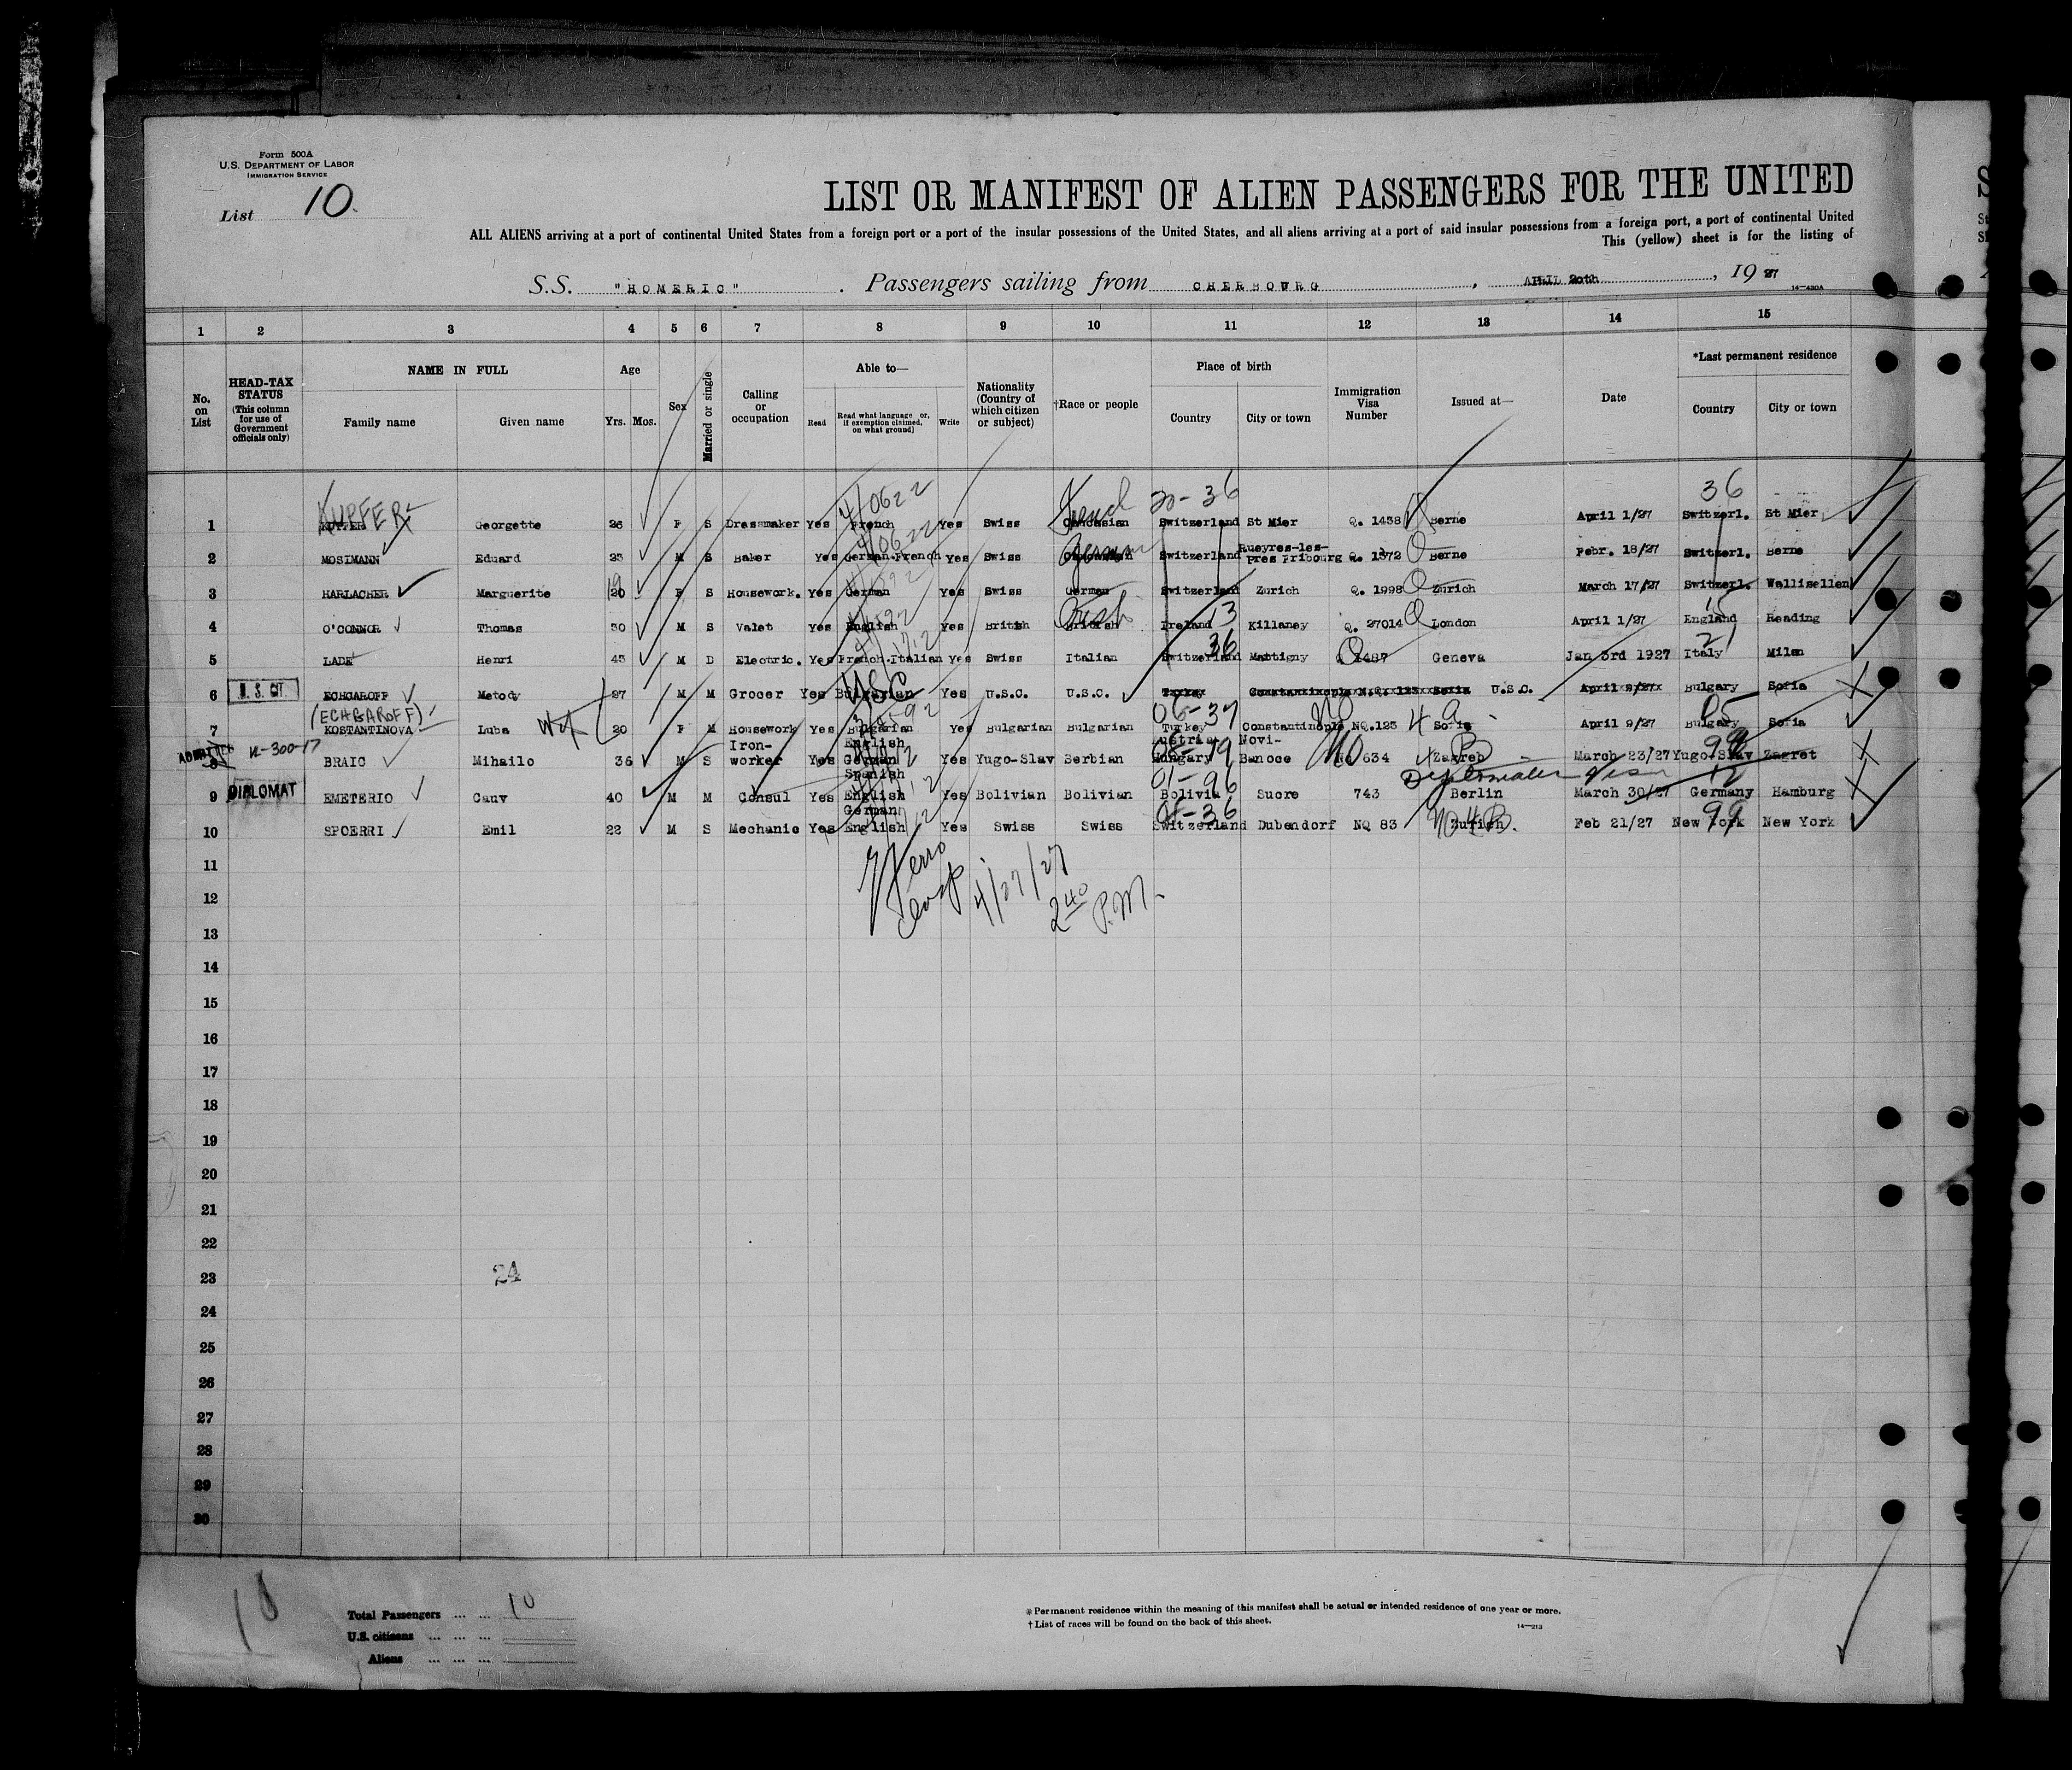 Form 500A
U.S. DEPARTMENT OF LABOR
IMMIGRATION SERVICE
List 10.
LIST OR MANIFEST OF ALIEN PASSENGERS FOR THE UNITED
ALL ALIENS arriving at a port of continental United States from a foreign port or a port of the insular possessions of the United States, and all aliens arriving at a port of said insular possessions from a foreign port, a port of continental United
This (yellow) sheet is for the listing of
S.S. "HOMERIC" . Passengers sailing from CHERBOURG , APRIL 20th , 19 27
14-430A
1 2 3 4 5 6 7 8 9 10 11 12 13 14 15
No. on List
HEAD-TAX STATUS (This column for use of Government officials only)
NAME IN FULL
Family name Given name
Age
Yrs. Mos.
Sex
Married or single
Calling or occupation
Able to—
Read Read what language or, if exemption claimed, on what ground) Write
Nationality (Country of which citizen or subject)
†Race or people
Place of birth
Country City or town
Immigration Visa Number
Issued at—
Date
*Last permanent residence
Country City or town
KUPFER 4/0622 French 20-36 36
1 Georgette 26 F S Dressmaker Yes French Yes Swiss Caucasian Switzerland St Mier Q. 1438 Berne April 1/27 Switzerl. St Mier
2 MOSIMANN Eduard 25 M S Baker Yes German.French Yes Swiss German Switzerland Rueyres-les-pres Fribourg Q. 1372 Berne Febr. 18/27 Switzerl. Berne
3 HARLACHER Marguerite 20 F S Housework. Yes German Yes Swiss German Switzerland Zurich Q. 1998 Zurich March 17/27 Switzerl. Wallisellen
4 O'CONNOR Thomas 30 M S Valet Yes English Yes British Irish Ireland 13 Killaney Q. 27014 London April 1/27 England Reading
5 LADE Henri 45 M D Electric. Yes French.Italian Yes Swiss Italian Switzerland 36 Mattigny Q 1487 Geneva Jan 3rd 1927 Italy Milan
6 U. S. CIT. ECHGAROFF Metody 27 M M Grocer Yes Bulgarian USC Yes U.S.C. U.S.C. Turkey Constantinople N.Q. 123 Sofia U.S.C. April 9/27 Bulgary Sofia
(ECHGAROFF)
7 KOSTANTINOVA Luba Wf 20 F M Housework Yes Bulgarian Yes Bulgarian Bulgarian 06-37 Turkey Constantinople NQ.123 Sofia April 9/27 Bulgary 05 Sofia
8 ADMITTED BRAIC Mihailo 36 M S Iron-worker Yes English German Yes Yugo-Slav Serbian Austria Hungary Novi-Banoce NQ 634 Zagreb March 23/27 Yugo-Slav Zagret
9 DIPLOMAT EMETERIO Cauv 40 M M Consul Yes Spanish English Yes Bolivian Bolivian 01-96 Bolivia Sucre 743 Diplomatic Visa Berlin March 30/27 Germany 12 Hamburg
10 SPOERRI Emil 22 M S Mechanic Yes German English Yes Swiss Swiss 05-36 Switzerland Dubendorf NQ 83 Zurich. Feb 21/27 New York 99 New York
11
12
4/27/27
2 40 P.M.
13
14
15
16
17
18
19
20
21
22
23 24
24
25
26
27
28
29
30
10
Total Passengers ... ... 10
U.S. citizens ... ... ...
Aliens ... ... ...
*Permanent residence within the meaning of this manifest shall be actual or intended residence of one year or more.
†List of races will be found on the back of this sheet.
14-213